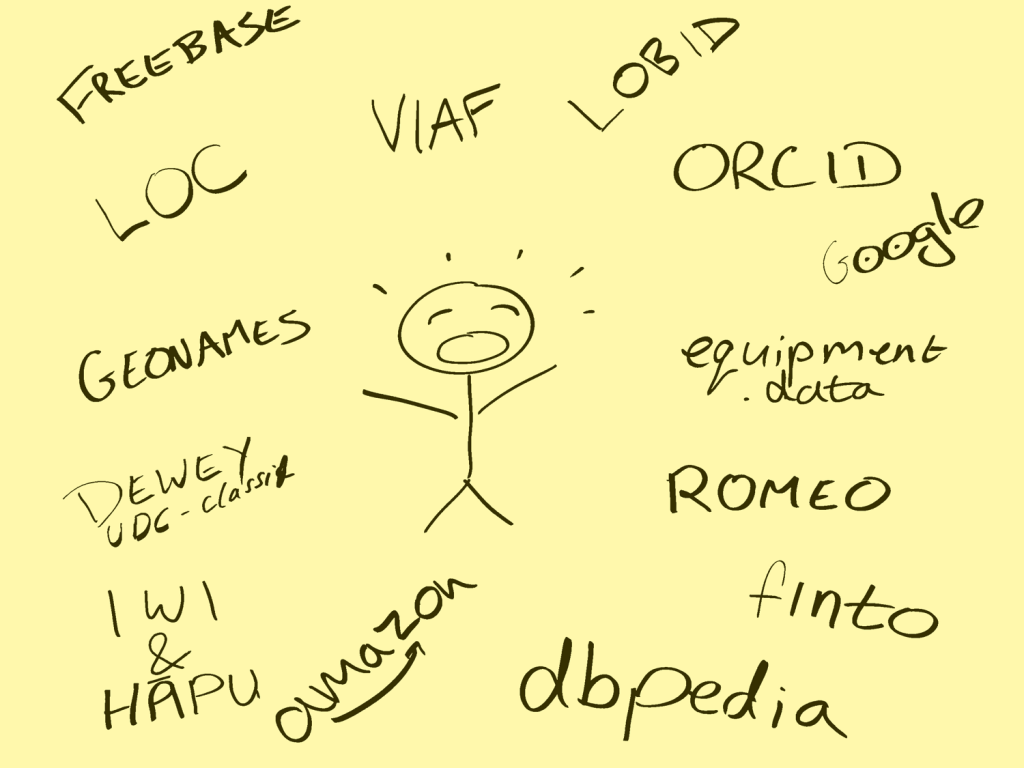 FREEBASE
VIAF
LOBID
LOC
ORCID
Google
GEONAMES
equipment
.data
DEWEY
UDC-classif
ROMEO
IWI
&
HĀPU
amazon
finto
dbpedia